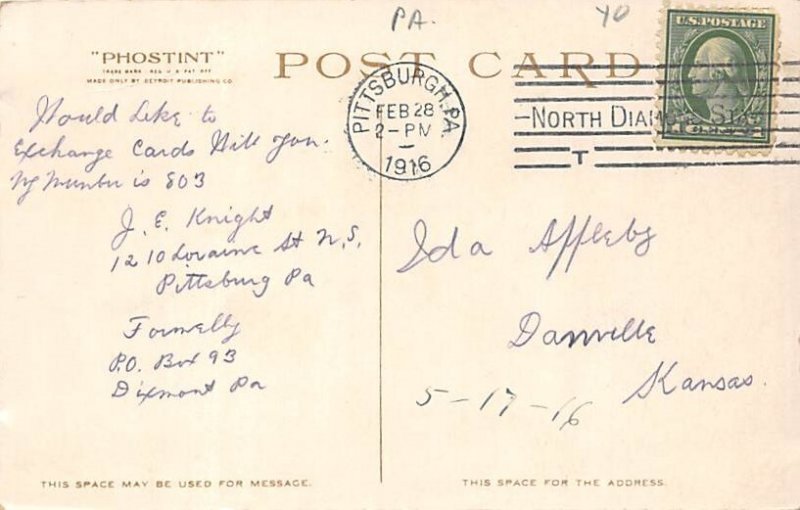 PA.
YO
"PHOSTINT"
TRADE MARK REG U S PAT OFF
MADE ONLY BY DETROIT PUBLISHING CO.
POST CARD
Would Like to
Exchange Cards With You.
My Number is 803
J. E. Knight
1210 Loraine St N.S.
Pittsburg Pa
Formelly
P.O. Box 93
Dixmont Pa
THIS SPACE MAY BE USED FOR MESSAGE.
PITTSBURGH, PA.
FEB 28
2-PM
1916
NORTH DIAMOND STA.
T
U.S. POSTAGE
1 CENT 1
Ida Appleby
Danville
Kansas.
5-17-16
THIS SPACE FOR THE ADDRESS.